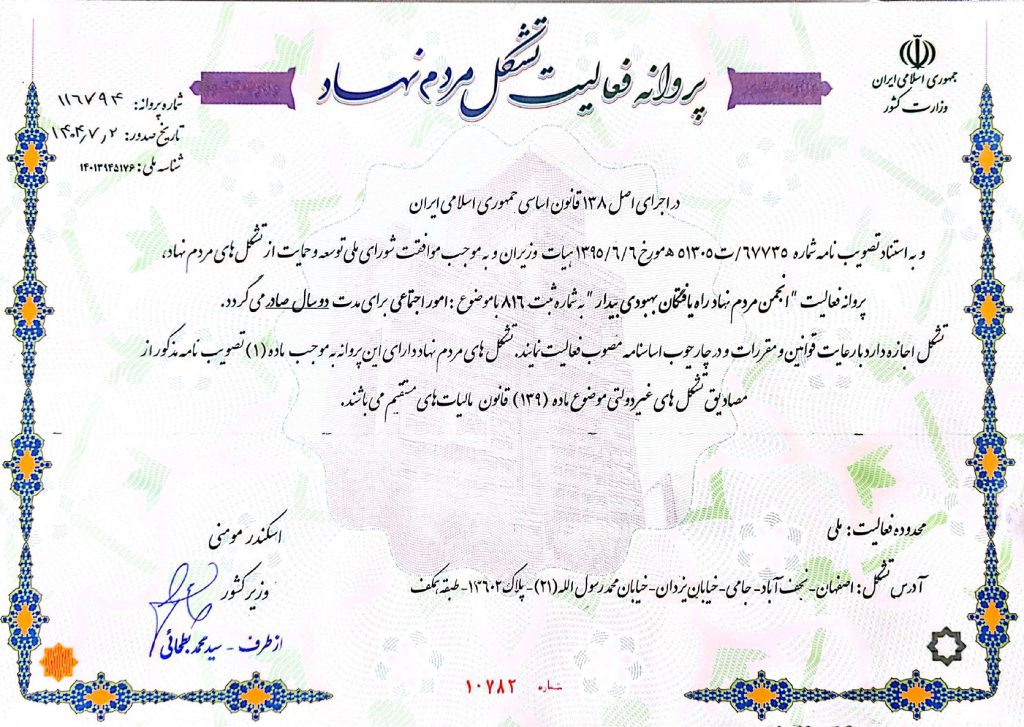 جمهوری اسلامی ایران
وزارت کشور
پروانه فعالیت تشکل مردم نهاد
شماره پروانه: ۱۱۶۷۹۴
تاریخ صدور: ۱۴۰۴٫۷٫۲
شناسه ملی: ۱۴۰۱۳۹۴۵۱۷۶
در اجرای اصل ۱۳۸ قانون اساسی جمهوری اسلامی ایران
و به استناد تصویب نامه شماره ۶۷۷۳۵/ت۵۱۳۰۵ ه مورخ ۱۳۹۵/۶/۶ هیات وزیران و به موجب موافقت شورای ملی توسعه و حمایت از تشکل های مردم نهاد،
پروانه فعالیت "انجمن مردم نهاد راه یافتگان بهبودی بیدار" به شماره ثبت ۸۱۶ با موضوع : امور اجتماعی برای مدت دو سال صادر می گردد.
تشکل اجازه دارد با رعایت قوانین و مقررات و در چارچوب اساسنامه مصوب فعالیت نمایند. تشکل های مردم نهاد دارای این پروانه به موجب ماده (۱) تصویب نامه مذکور از
مصادیق تشکل های غیردولتی موضوع ماده (۱۳۹) قانون مالیات های مستقیم می باشند.
محدوده فعالیت: ملی
آدرس تشکل: اصفهان- نجف آباد- جامی- خیابان یزدان- خیابان محمد رسول الله (۲۱)- پلاک ۱۳۶۰۲- طبقه همکف
اسکندر مومنی
وزیر کشور
از طرف - سید محمد بطحائی
شماره ۱۰۷۸۲